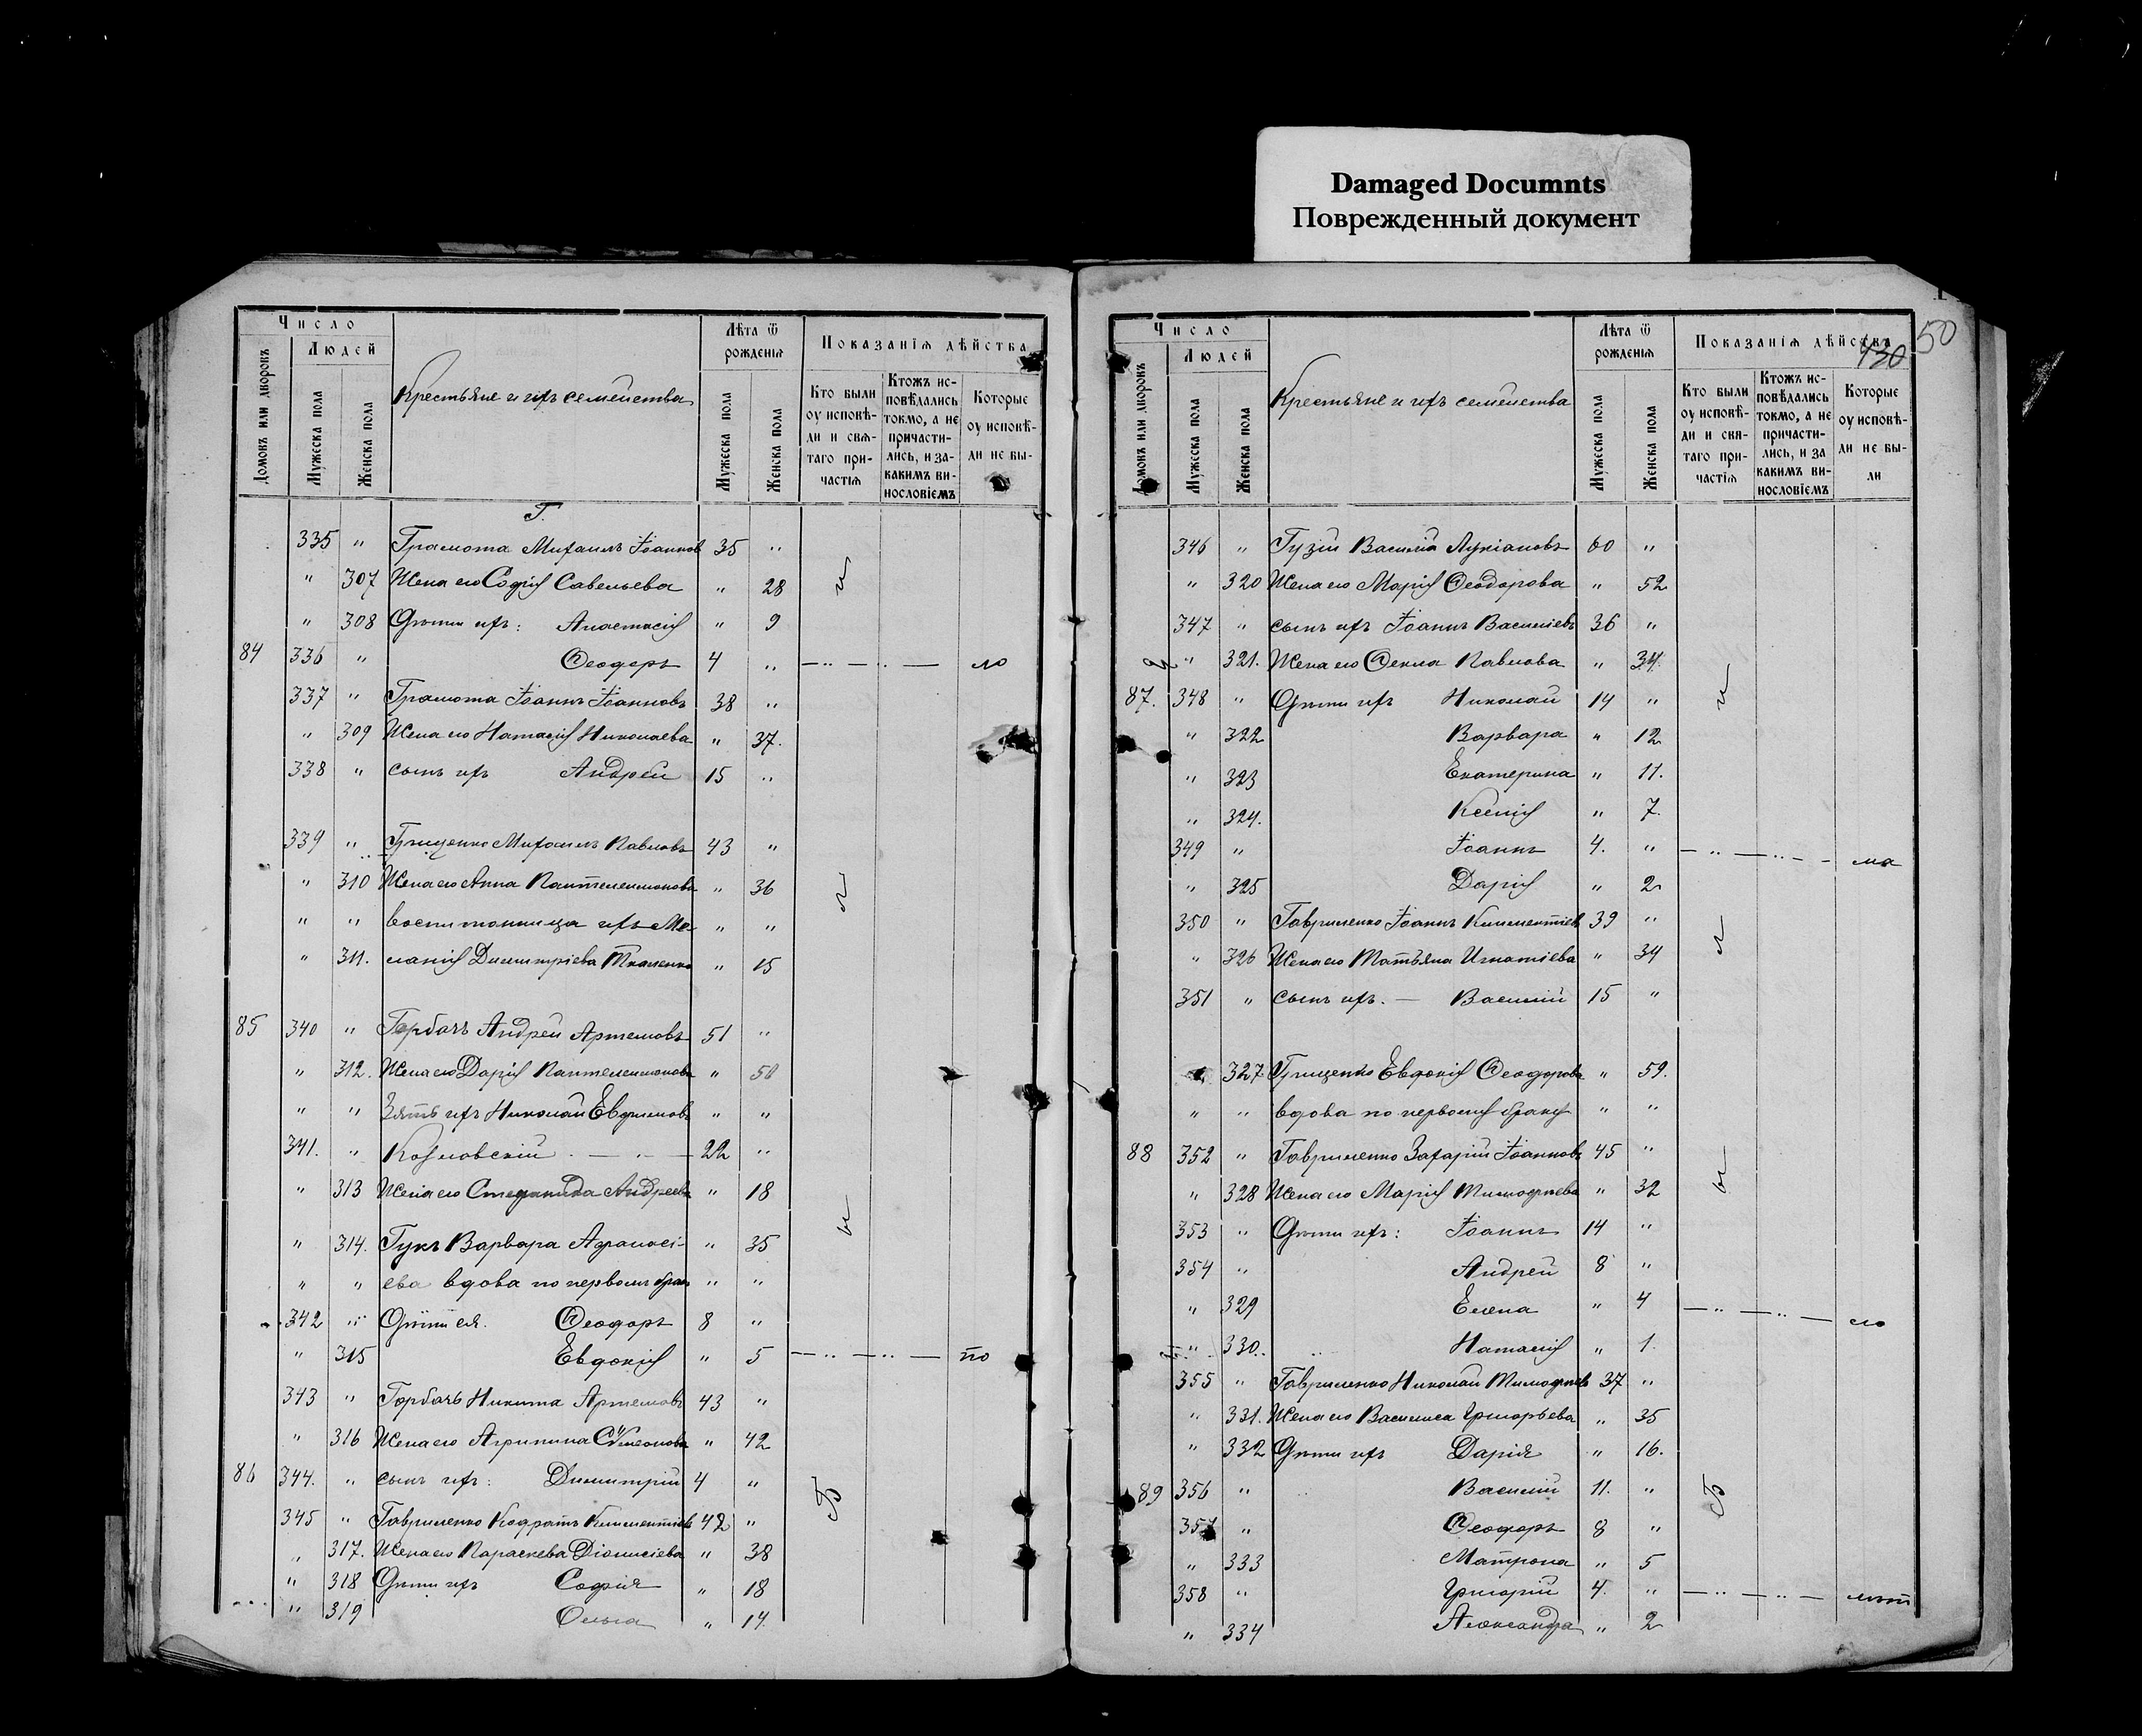 Damaged Documnts
Поврежденный документ
Число
Людей
Домовъ или дворовъ
Мужеска пола
Женска пола
Крестьяне и ихъ семейства
Лѣта ѿ рожденія
Мужеска пола
Женска пола
Показанія дѣйства
Кто были оу исповѣди и свѧтаго причастіѧ
Ктожъ исповѣдались токмо, а не причастились, и за какимъ винословіемъ
Которые оу исповѣди не бы-
Г.
335 " Грамота Михаилъ Іоаннов 35 "
" 307 Жена его Софія Савельева " 28 и
" 308 Дѣти ихъ: Анастасія " 9
84 336 " Ѳеодоръ 4 " — " — " — ло
337 " Грамота Іоаннъ Іоанновъ 38 "
" 309 Жена его Наталія Николаева " 37.
338 " сынъ ихъ Андрей 15 "
339 " Грищенко Михаилъ Павловъ 43 "
" 310 Жена его Анна Пантелеимонова " 36
" " воспитанница ихъ Ме- " "
" 311. ланія Димитріева Ткаченко " 15
85 340 " Горбачъ Андрей Артемовъ 51 "
" 312. Жена его Дарія Пантелеимонова " 50
" " Зять ихъ Николай Евфимовъ " "
341. " Козловскій . — " — 22 "
" 313 Жена его Стефанида Андреева " 18
" 314. Гукъ Варвара Афанасі- " 35 ы
" " ева вдова по первом брак " "
342 " Дѣти ея. Ѳеодоръ 8 "
" 315 Евдокія " 5 — " — " — то
343 " Горбачъ Никита Артемовъ 43 "
" 316 Жена его Агрипина Сѵмеонова " 42
86 344. " сынъ ихъ: Димитрій 4 "
345 " Гавриленко Кодратъ Климентіев 42 "
" 317. Жена его Параскева Діонисіева " 38
" 318 Дѣти ихъ Софія " 18
" 319 Ольга " 14.
50
430
Число
Людей
Домовъ или дворовъ
Мужеска пола
Женска пола
Крестьяне и ихъ семейства
Лѣта ѿ рожденія
Мужеска пола
Женска пола
Показанія дѣйства
Кто были оу исповѣди и свѧтаго причастіѧ
Ктожъ исповѣдались токмо, а не причастились, и за какимъ винословіемъ
Которые оу исповѣди не были
346 " Гузій Василій Лукіановъ 60 "
" 320 Жена его Марія Ѳеодорова " 52
347 " сынъ ихъ Іоаннъ Василіевъ 36 "
" 321. Жена его Ѳекла Павлова " 34.
87. 348 " Дѣти ихъ Николай 14 " и
" 322 Варвара " 12
" 323 Екатерина " 11.
" 324. Ксенія " 7.
349 " Іоаннъ 4. " — " — " — ма
" 325 Дарія " 2
350 " Гавриленко Іоаннъ Климентіев 39 "
" 326 Жена его Татьяна Игнатіева " 34
351 " сынъ ихъ. — Василій 15 "
327 Грищенко Евдокія Ѳеодорова " 59.
" " вдова по первому браку " "
88 352 " Гавриленко Захарій Іоанновъ 45 "
" 328 Жена его Марія Тимофеева " 32 ы
353 " Дѣти ихъ: Іоаннъ 14 "
354 " Андрей 8 "
" 329 Елена " 4 — " — " — ло
" 330. Наталія " 1.
355 " Гавриленко Николай Тимофеевъ 37 "
" 331. Жена его Василиса Григорьева " 35
" 332 Дѣти ихъ Дарія " 16.
89 356 " Василій 11. "
357 " Ѳеодоръ 8 "
" 333 Матрона " 5
358 " Григорій 4. " — " — " — лѣт
" 334 Александра " 2